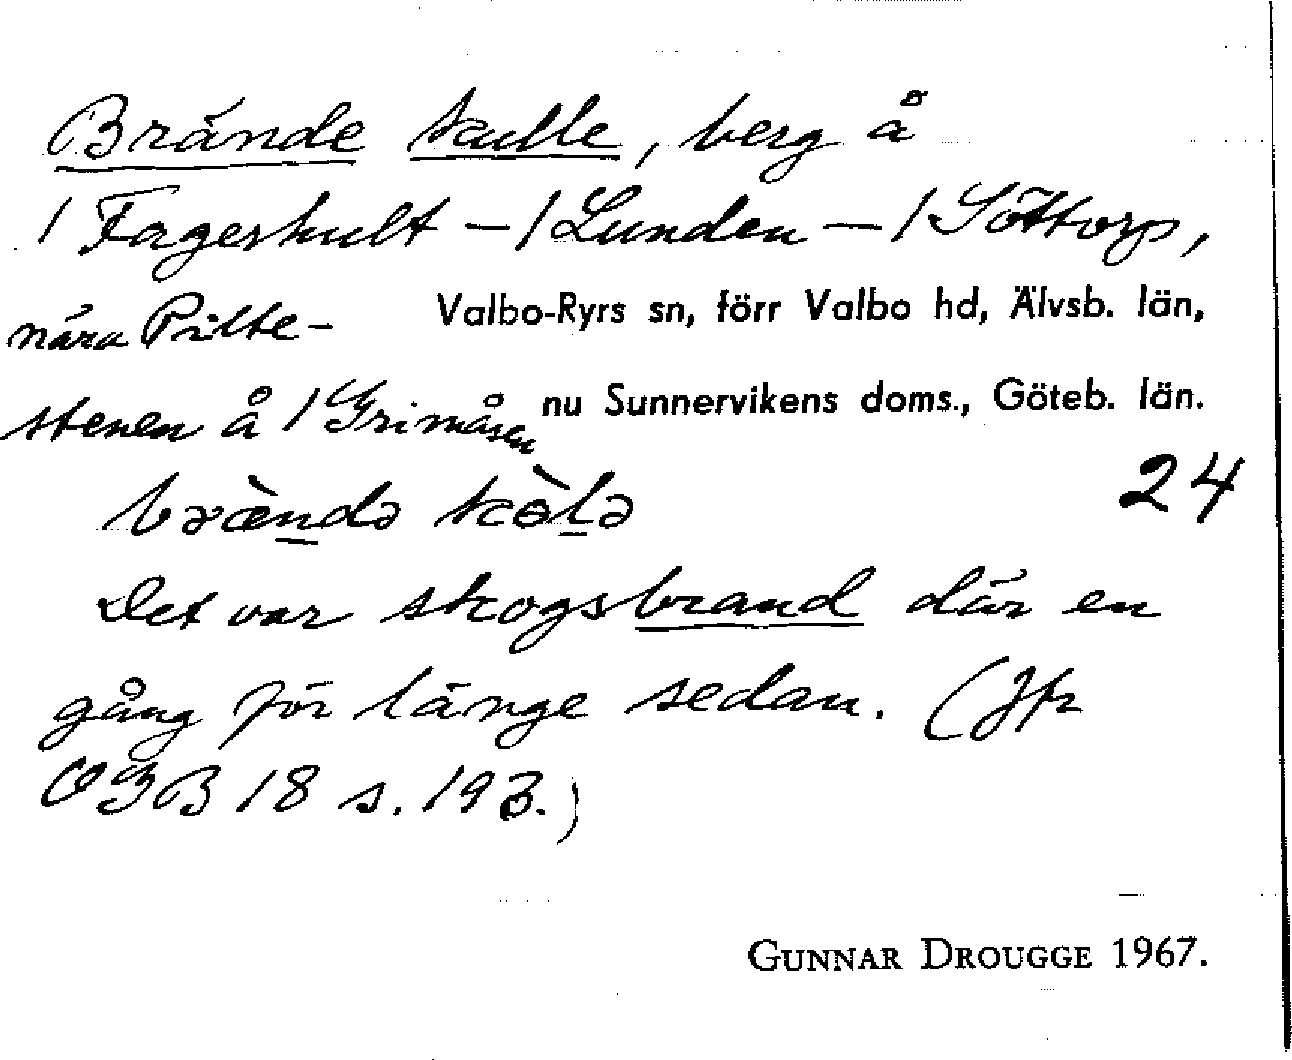 Brände kulle, berg å
1 Fagerhult – 1 Lunden – 1 Söttorp,
nära Pilte- Valbo-Ryrs sn, förr Valbo hd, Älvsb. län,
stenen å 1 Grimåsen nu Sunnervikens doms., Göteb. län.
bræ̀ndə kɵ̀lə 24
Det var skogsbrand där en
gång för länge sedan. (Jfr
OGB 18 s. 193.)
GUNNAR DROUGGE 1967.